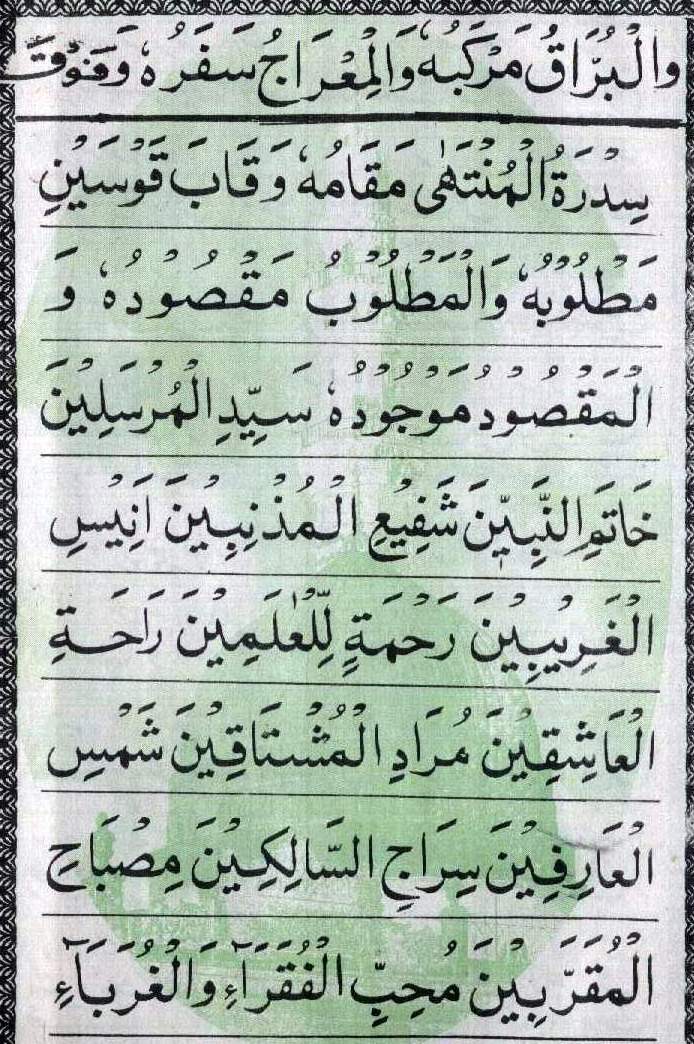 وَالْبُرَاقُ مَرْكَبُهٗ وَالْمِعْرَاجُ سَفَرُهٗ وَفَوْقَ
سِدْرَةُ الْمُنْتَهٰى مَقَامُهٗ وَقَابَ قَوْسَيْنِ
مَطْلُوْبُهٗ وَالْمَطْلُوْبُ مَقْصُوْدُهٗ وَ
الْمَقْصُوْدُ مَوْجُوْدُهٗ سَيِّدِ الْمُرْسَلِيْنَ
خَاتَمِ النَّبِيِّيْنَ شَفِيْعِ الْمُذْنِبِيْنَ اَنِيْسِ
الْغَرِيْبِيْنَ رَحْمَةٍ لِّلْعٰلَمِيْنَ رَاحَةِ
الْعَاشِقِيْنَ مُرَادِ الْمُشْتَاقِيْنَ شَمْسِ
الْعَارِفِيْنَ سِرَاجِ السَّالِكِيْنَ مِصْبَاحِ
الْمُقَرَّبِيْنَ مُحِبِّ الْفُقَرَآءِ وَالْغُرَبَآءِ